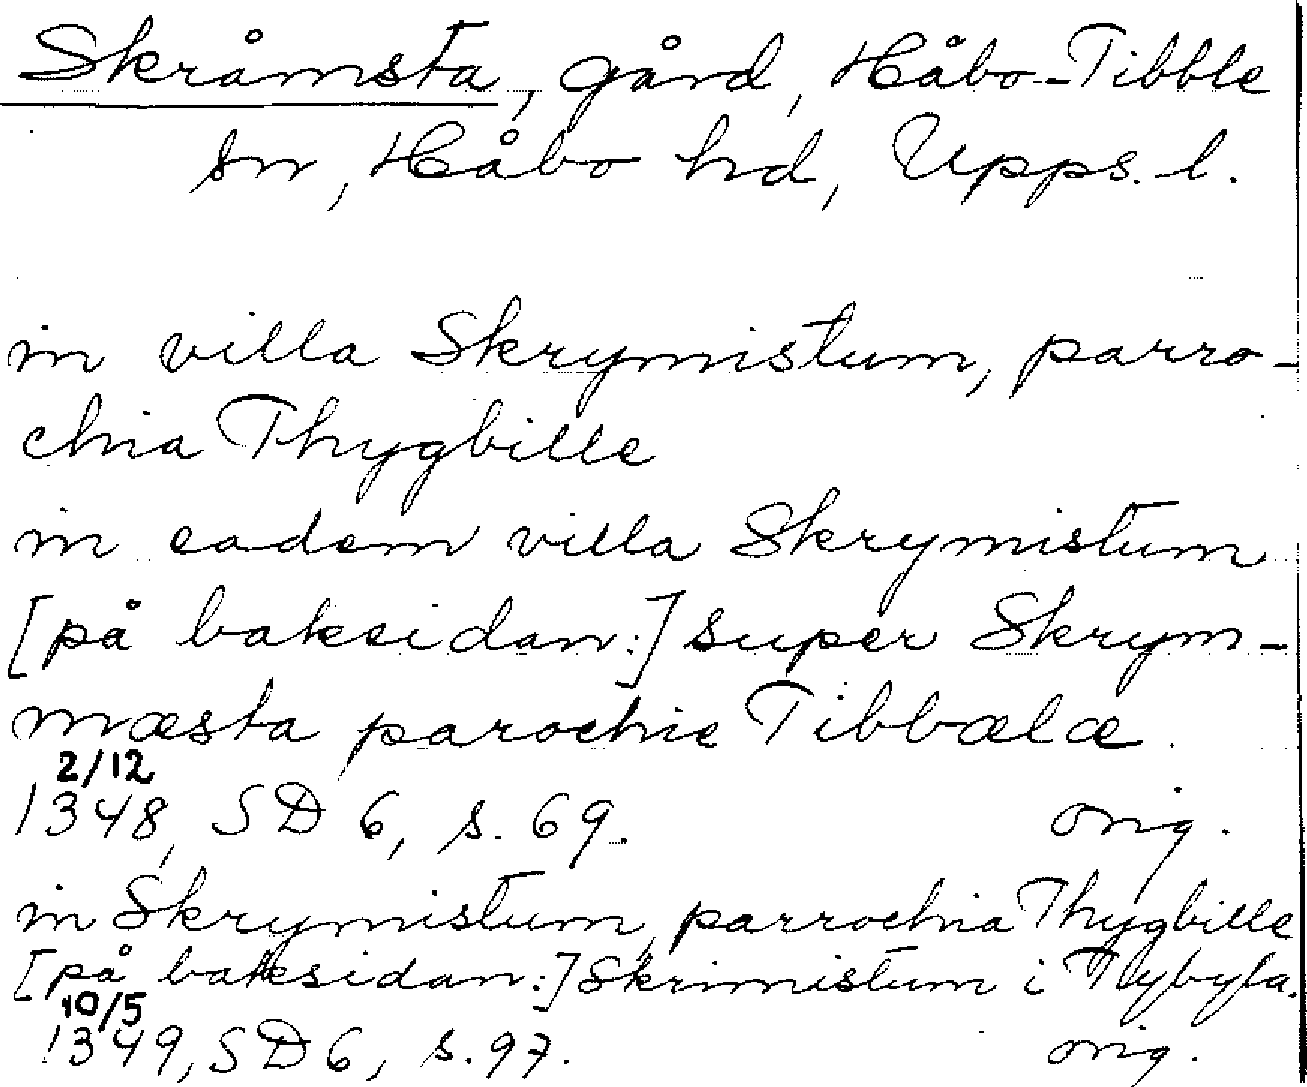 Skråmsta, gård, Håbo-Tibble
sn, Håbo hd, Upps. l.
in villa Skrymistum, parro-
chia Thygbille
in eadem villa Skrymistum
[på baksidan:] super Skrym-
mæsta parochie Tibbælæ.
2/12
1348, SD 6, s. 69. orig.
in Skrymistum, parrochia Thygbille
[på baksidan:] Skrimistum i Tlybyla.
10/5
1349, SD 6, s. 97. orig.